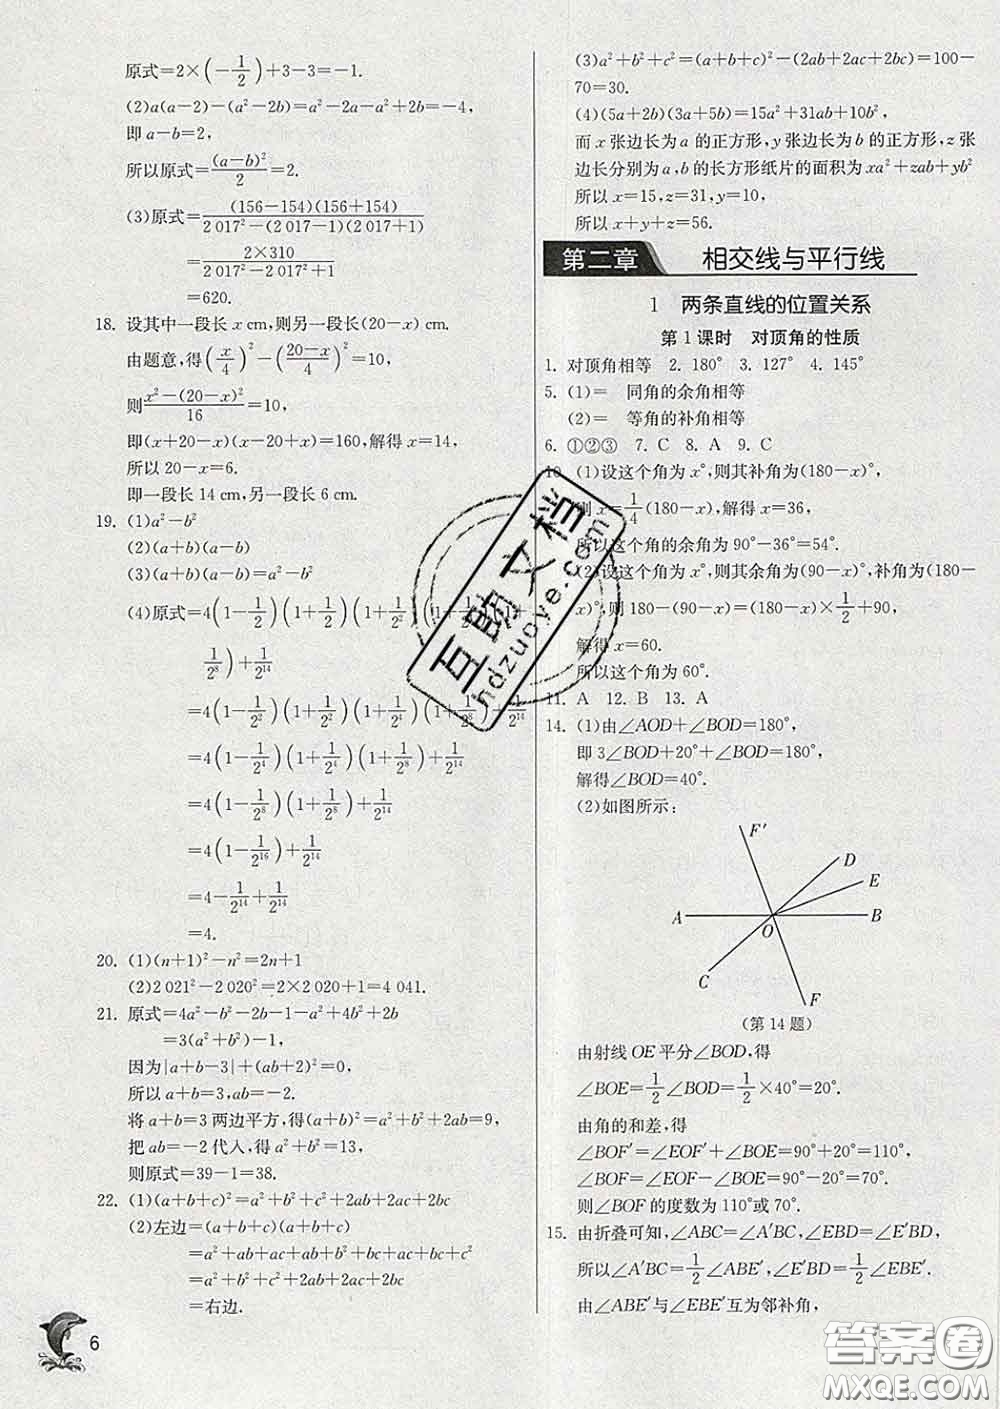 原式=2×(-1/2)+3-3=-1.
(2)a(a-2)-(a²-2b)=a²-2a-a²+2b=-4,
即 a-b=2,
所以原式=(a-b)²/2=2.
(3)原式=(156-154)(156+154)/(2 017²-(2 017-1)(2 017+1))
=2×310/(2 017²-2 017²+1)
=620.
18. 设其中一段长 x cm,则另一段长(20-x) cm.
由题意,得(x/4)²-((20-x)/4)²=10,
则(x²-(20-x)²)/16=10,
即(x+20-x)(x-20+x)=160,解得 x=14,
所以 20-x=6.
即一段长 14 cm,另一段长 6 cm.
19. (1)a²-b²
(2)(a+b)(a-b)
(3)(a+b)(a-b)=a²-b²
(4)原式=4(1-1/2)(1+1/2)(1+1/2²)(1+1/2⁴)(1+
1/2⁸)+1/2¹⁴
=4(1-1/2²)(1+1/2²)(1+1/2⁴)(1+1/2⁸)+1/2¹⁴
=4(1-1/2⁴)(1+1/2⁴)(1+1/2⁸)+1/2¹⁴
=4(1-1/2⁸)(1+1/2⁸)+1/2¹⁴
=4(1-1/2¹⁶)+1/2¹⁴
=4-1/2¹⁴+1/2¹⁴
=4.
20. (1)(n+1)²-n²=2n+1
(2)2 021²-2 020²=2×2 020+1=4 041.
21. 原式=4a²-b²-2b-1-a²+4b²+2b
=3(a²+b²)-1,
因为|a+b-3|+(ab+2)²=0,
所以 a+b=3,ab=-2.
将 a+b=3 两边平方,得(a+b)²=a²+b²+2ab=9,
把 ab=-2 代入,得 a²+b²=13,
则原式=39-1=38.
22. (1)(a+b+c)²=a²+b²+c²+2ab+2ac+2bc
(2)左边=(a+b+c)(a+b+c)
=a²+ab+ac+ab+b²+bc+ac+bc+c²
=a²+b²+c²+2ab+2ac+2bc
=右边.
6
(3)a²+b²+c²=(a+b+c)²-(2ab+2ac+2bc)=100-
70=30.
(4)(5a+2b)(3a+5b)=15a²+31ab+10b²,
而 x 张边长为 a 的正方形,y 张边长为 b 的正方形,z 张
边长分别为 a,b 的长方形纸片的面积为 xa²+zab+yb²
所以 x=15,z=31,y=10,
所以 x+y+z=56.
第二章 相交线与平行线
1 两条直线的位置关系
第 1 课时 对顶角的性质
1. 对顶角相等 2. 180° 3. 127° 4. 145°
5. (1)= 同角的余角相等
(2)= 等角的补角相等
6. ①②③ 7. C 8. A 9. C
10. (1)设这个角为 x°,则其补角为(180-x)°,
则 x=1/4(180-x),解得 x=36,
所以这个角的余角为 90°-36°=54°.
(2)设这个角为 x°,则其余角为(90-x)°,补角为(180-
x)°,则 180-(90-x)=(180-x)×1/2+90,
解得 x=60.
所以这个角为 60°.
11. A 12. B 13. A
14. (1)由∠AOD+∠BOD=180°,
即 3∠BOD+20°+∠BOD=180°,
解得∠BOD=40°.
(2)如图所示:
F′
D
E
A
B
O
C
F
(第 14 题)
由射线 OE 平分∠BOD,得
∠BOE=1/2∠BOD=1/2×40°=20°.
由角的和差,得
∠BOF′=∠EOF′+∠BOE=90°+20°=110°,
∠BOF=∠EOF-∠BOE=90°-20°=70°.
则∠BOF 的度数为 110°或 70°.
15. 由折叠可知,∠ABC=∠A′BC,∠EBD=∠E′BD,
所以∠A′BC=1/2∠ABA′,∠E′BD=1/2∠EBE′.
由∠ABE′与∠EBE′互为邻补角,
互助文档
hdzuoye.com
答案圈
MXQE.COM